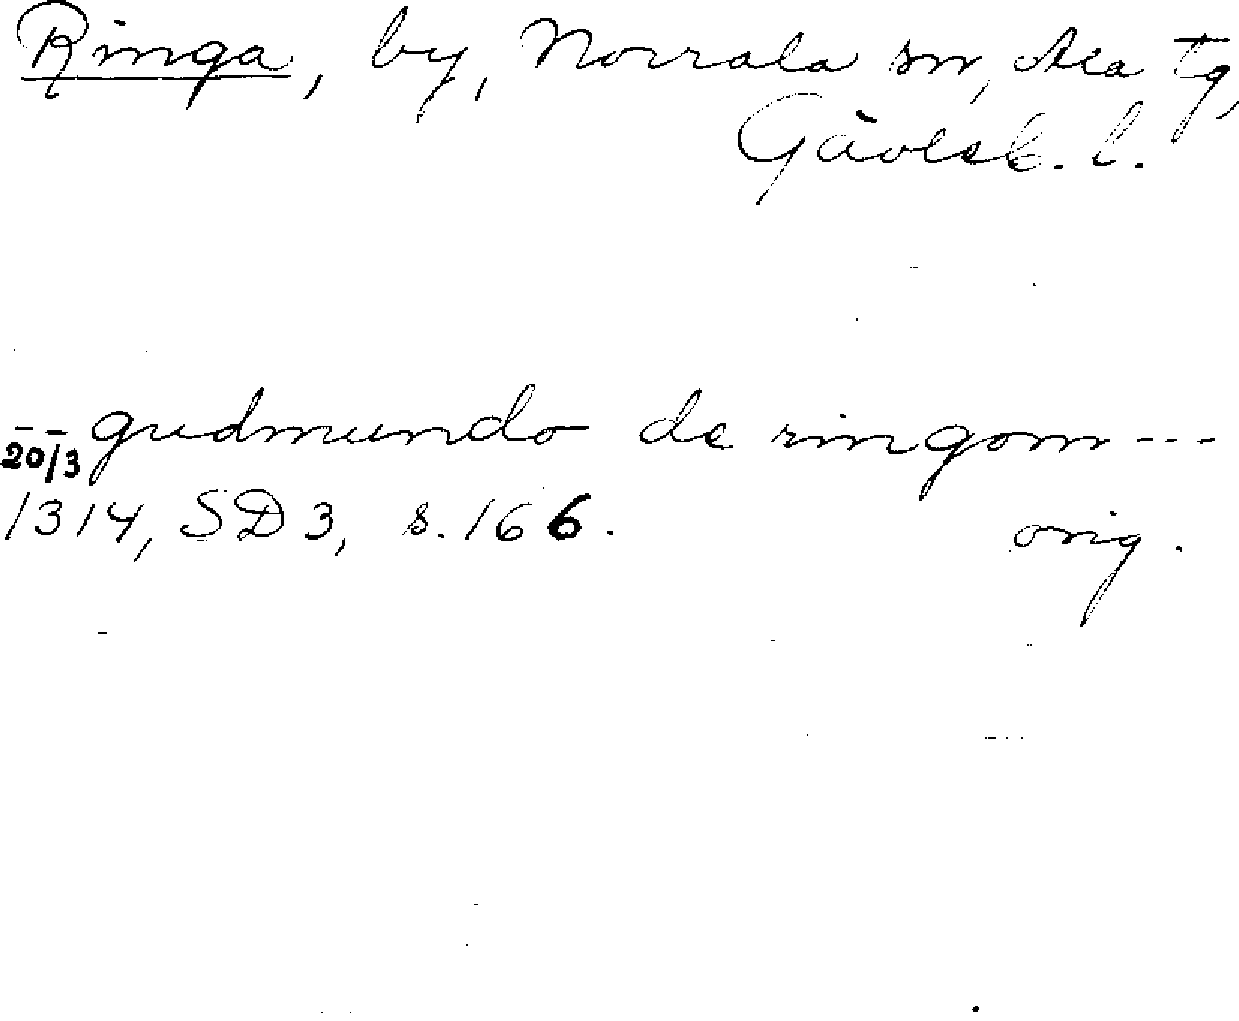 Ringa, by, Norrala sn, Ala tg,
Gävleb. l.
-- gudmundo de ringom ---
20/3
1314, SD 3, s. 166. orig.